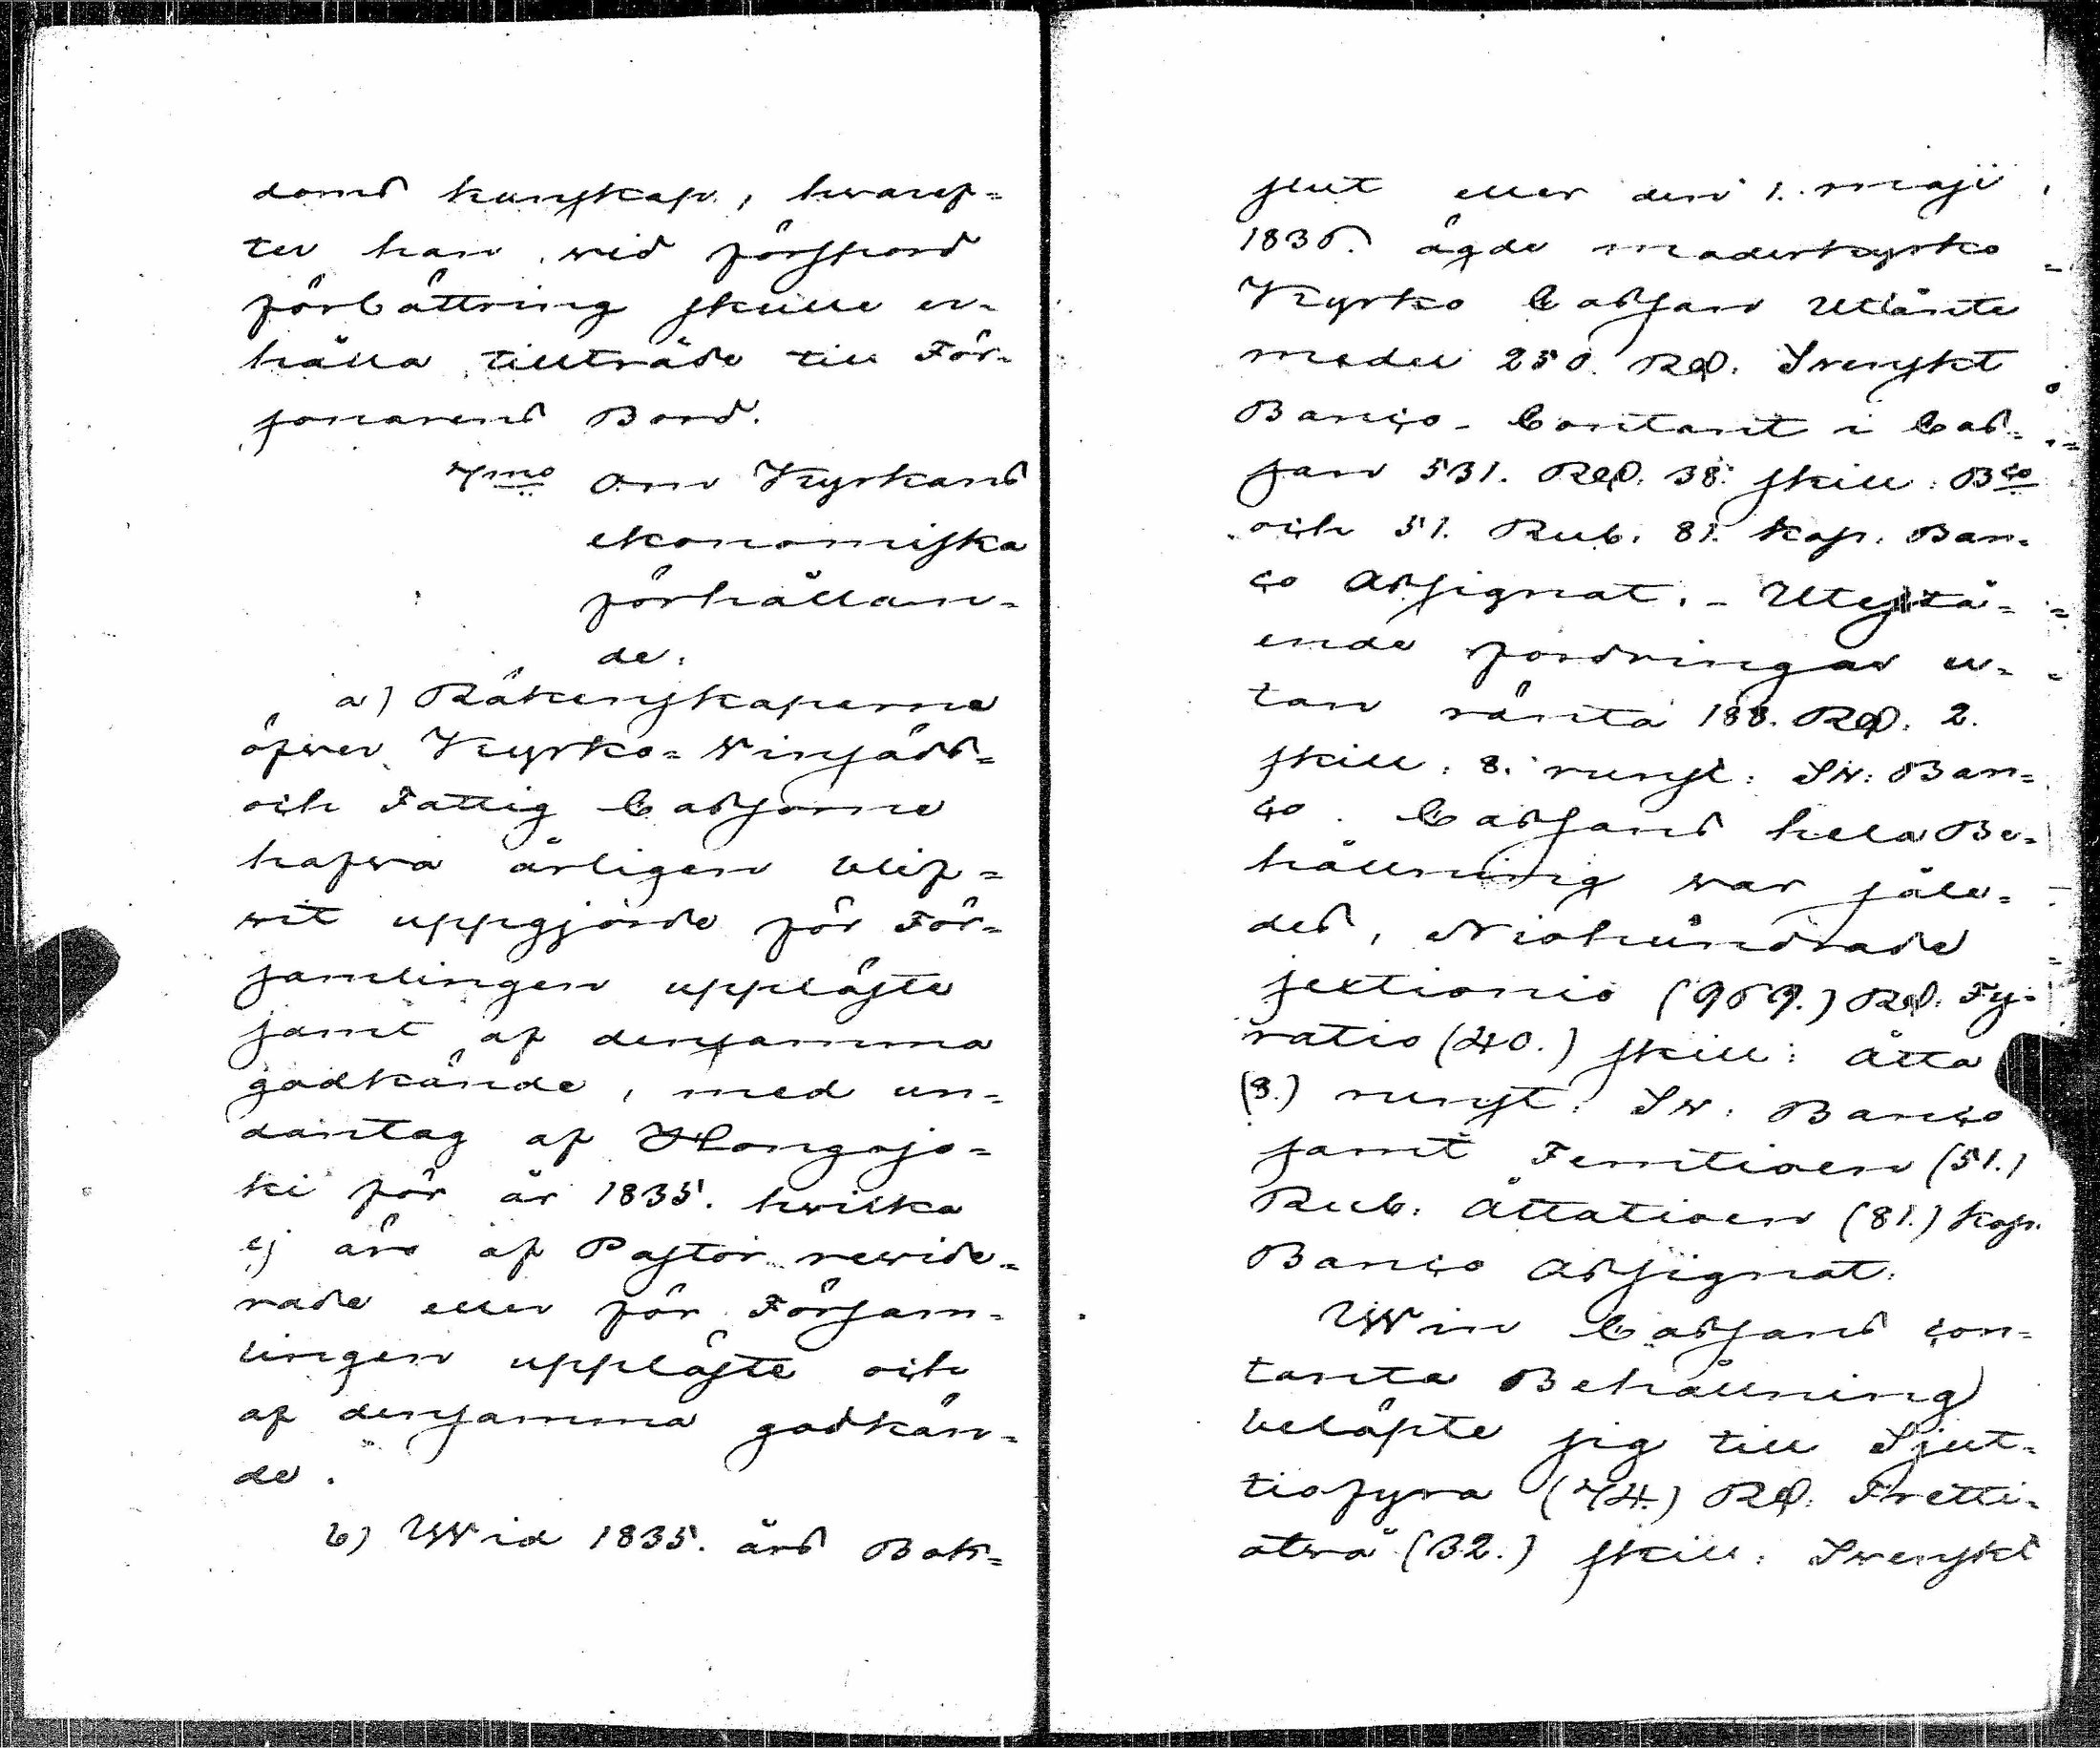 doms kunskap, hwaref-
ter han wid förspord
förbättring skulle er-
hålla tillträde till För-
sonarens Bord.
7mo Om Kyrkans
ekonomiska
förhållan-
de.
a) Räkenskaperne
öfwer Kyrko- Winsäds-
och Fattig Cassorne
hafwa årligen blif-
wit uppgjorde för För-
samlingen uppläste
samt af densamma
godkände, med un-
dantag af Hongajo-
ki för år 1835. hwilka
ej äro af Pastor rewide-
rade eller för Försam-
lingen uppläste och
af densamma godkän-
de.
b) Wid 1835. års Bok-
slut eller den 1. Maji
1836. ägde moderkyrko
Kyrko Cassan Utlånte
medel 250. Rd. Swenskt
Banco - Contant i Cas-
san 531. Rd. 38. skill. Bco
och 51. Rub. 81. kop. Ban-
co Assignat. - Utestå-
ende fordringar u-
tan ränta 188. Rd. 2.
skill. 8. runst. Sw. Ban-
co. Cassans hela Be-
hållning war såle-
des, Niohundrade
sextionio (969.) Rd. Fy-
ratio (40.) skill: åtta
(8.) runst. Sw. Banco
samt Femtioen (51.)
Rub. Åttatioen (81.) kop.
Banco Assignat.
Win Cassans con-
tanta Behållning
belöpte sig till Sjut-
tiofyra (74.) Rd. Tretti-
otwå (32.) skill. Swenskt